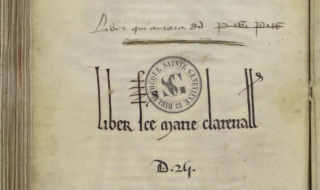 Liber qui
BIBLIOTHEQUE SAINTE GENEVIEVE
SG
liber sce marie clareuall
D. 24.